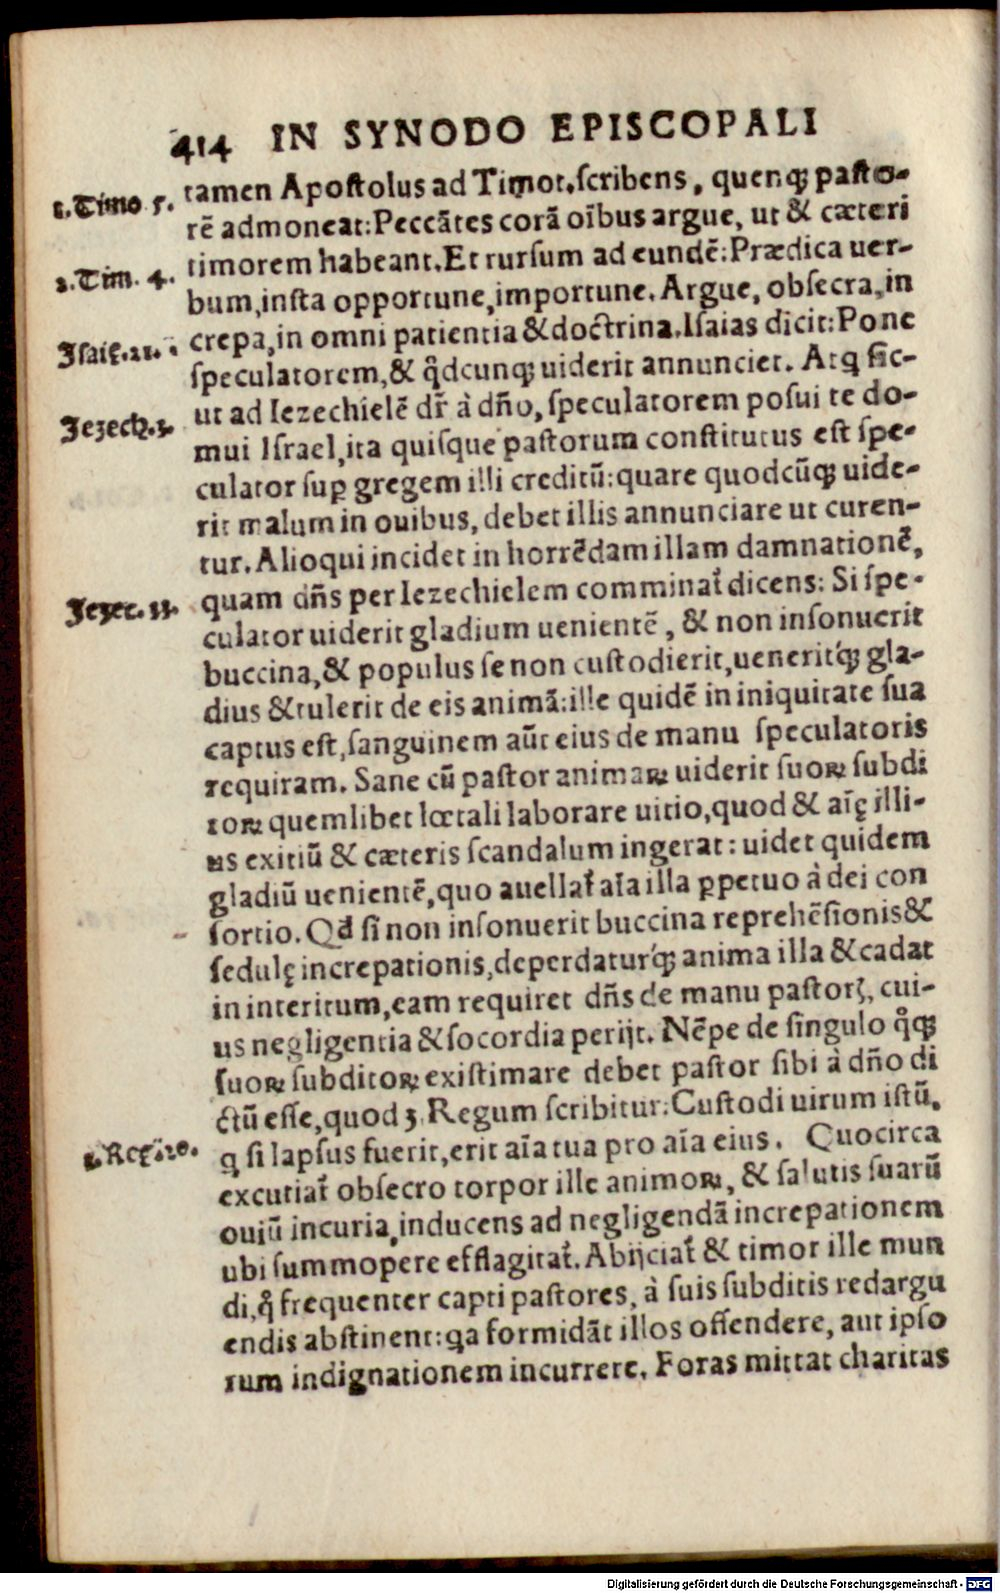 414 IN SYNODO EPISCOPALI
1.Timo 5. tamen Apostolus ad Timot.scribens, quenqꝫ pasto-
rē admoneat:Peccātes corā oībus argue, ut & cæteri
2.Tim. 4. timorem habeant.Et rursum ad eundē:Prædica uer-
bum,insta opportune,importune. Argue, obsecra,in
Isaię.21. crepa,in omni patientia & doctrina.Isaias dicit:Pone
speculatorem,& qͦdcunqꝫ uiderit annunciet. Atq sic-
Iezech.3. ut ad Iezechielē dr̄ à dño, speculatorem posui te do-
mui Israel,ita quisque pastorum constitutus est spe-
culator suꝑ gregem illi creditū:quare quodcūqꝫ uide-
rit malum in ouibus, debet illis annunciare ut curen-
tur. Alioqui incidet in horrēdam illam damnationē,
Iezec. 33. quam dn̄s per Iezechielem comminat᷑ dicens: Si spe-
culator uiderit gladium uenientē, & non insonuerit
buccina,& populus se non custodierit,ueneritqꝫ gla-
dius & tulerit de eis animā:ille quidē in iniquitate sua
captus est,sanguinem aūt eius de manu speculatoris
requiram. Sane cū pastor animaꝝ uiderit suoꝝ subdi
toꝝ quemlibet lœtali laborare uitio,quod & aīę illi-
us exitiū & cæteris scandalum ingerat: uidet quidem
gladiū uenientē,quo auellat᷑ aīa illa ꝑpetuo à dei con
sortio. Qđ si non insonuerit buccina reprehēsionis &
sedulę increpationis,deperdaturqꝫ anima illa & cadat
in interitum,eam requiret dn̄s de manu pastorꝭ, cui-
us negligentia & socordia perijt. Nēpe de singulo qͦqꝫ
suoꝝ subditoꝝ existimare debet pastor sibi à dño di
ctū esse,quod 3.Regum scribitur:Custodi uirum istū.
3.Reg.20. q si lapsus fuerit,erit aīa tua pro aīa eius. Quocirca
excutiat᷑ obsecro torpor ille animoꝝ, & salutis suarū
ouiū incuria,inducens ad negligendā increpationem
ubi summopere efflagitat᷑. Abijciat᷑ & timor ille mun
di,qͦ frequenter capti pastores, à suis subditis redargu
endis abstinent:qa formidāt illos offendere, aut ipso
rum indignationem incurrere. Foras mittat charitas
Digitalisierung gefördert durch die Deutsche Forschungsgemeinschaft - DFG